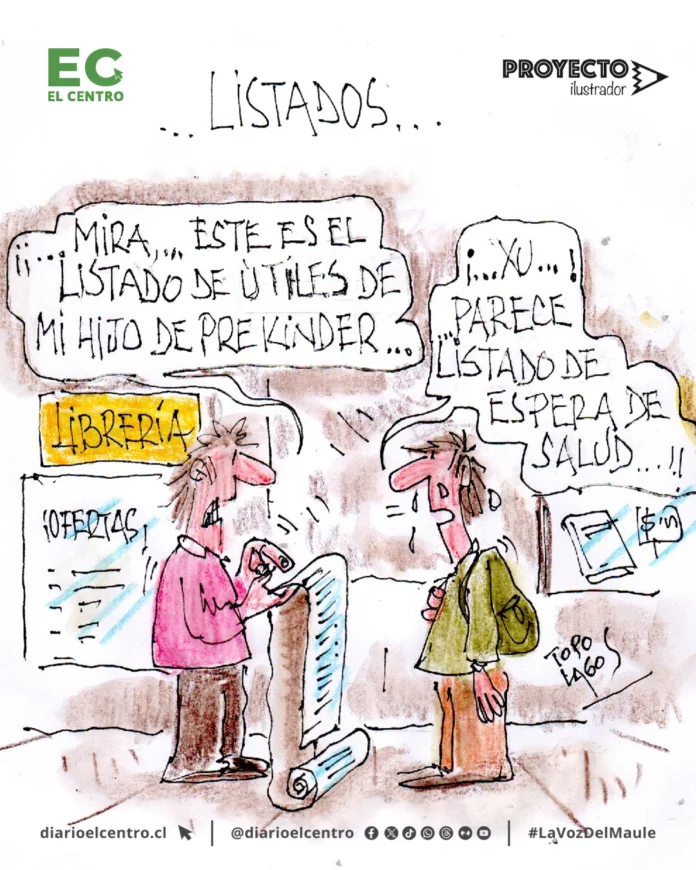 EC
EL CENTRO
PROYECTO
ilustrador
... LISTADOS...
¡¡... MIRA,... ESTE ES EL
LISTADO DE ÙTILES DE
MI HIJO DE PREKINDER...
¡...XU...!
...PARECE
LISTADO DE
ESPERA DE
SALUD...!!
LIBRERÍA
¡OFERTAS!
$'s
TOPO
LAGOS
diarioelcentro.cl
@diarioelcentro
#LaVozDelMaule